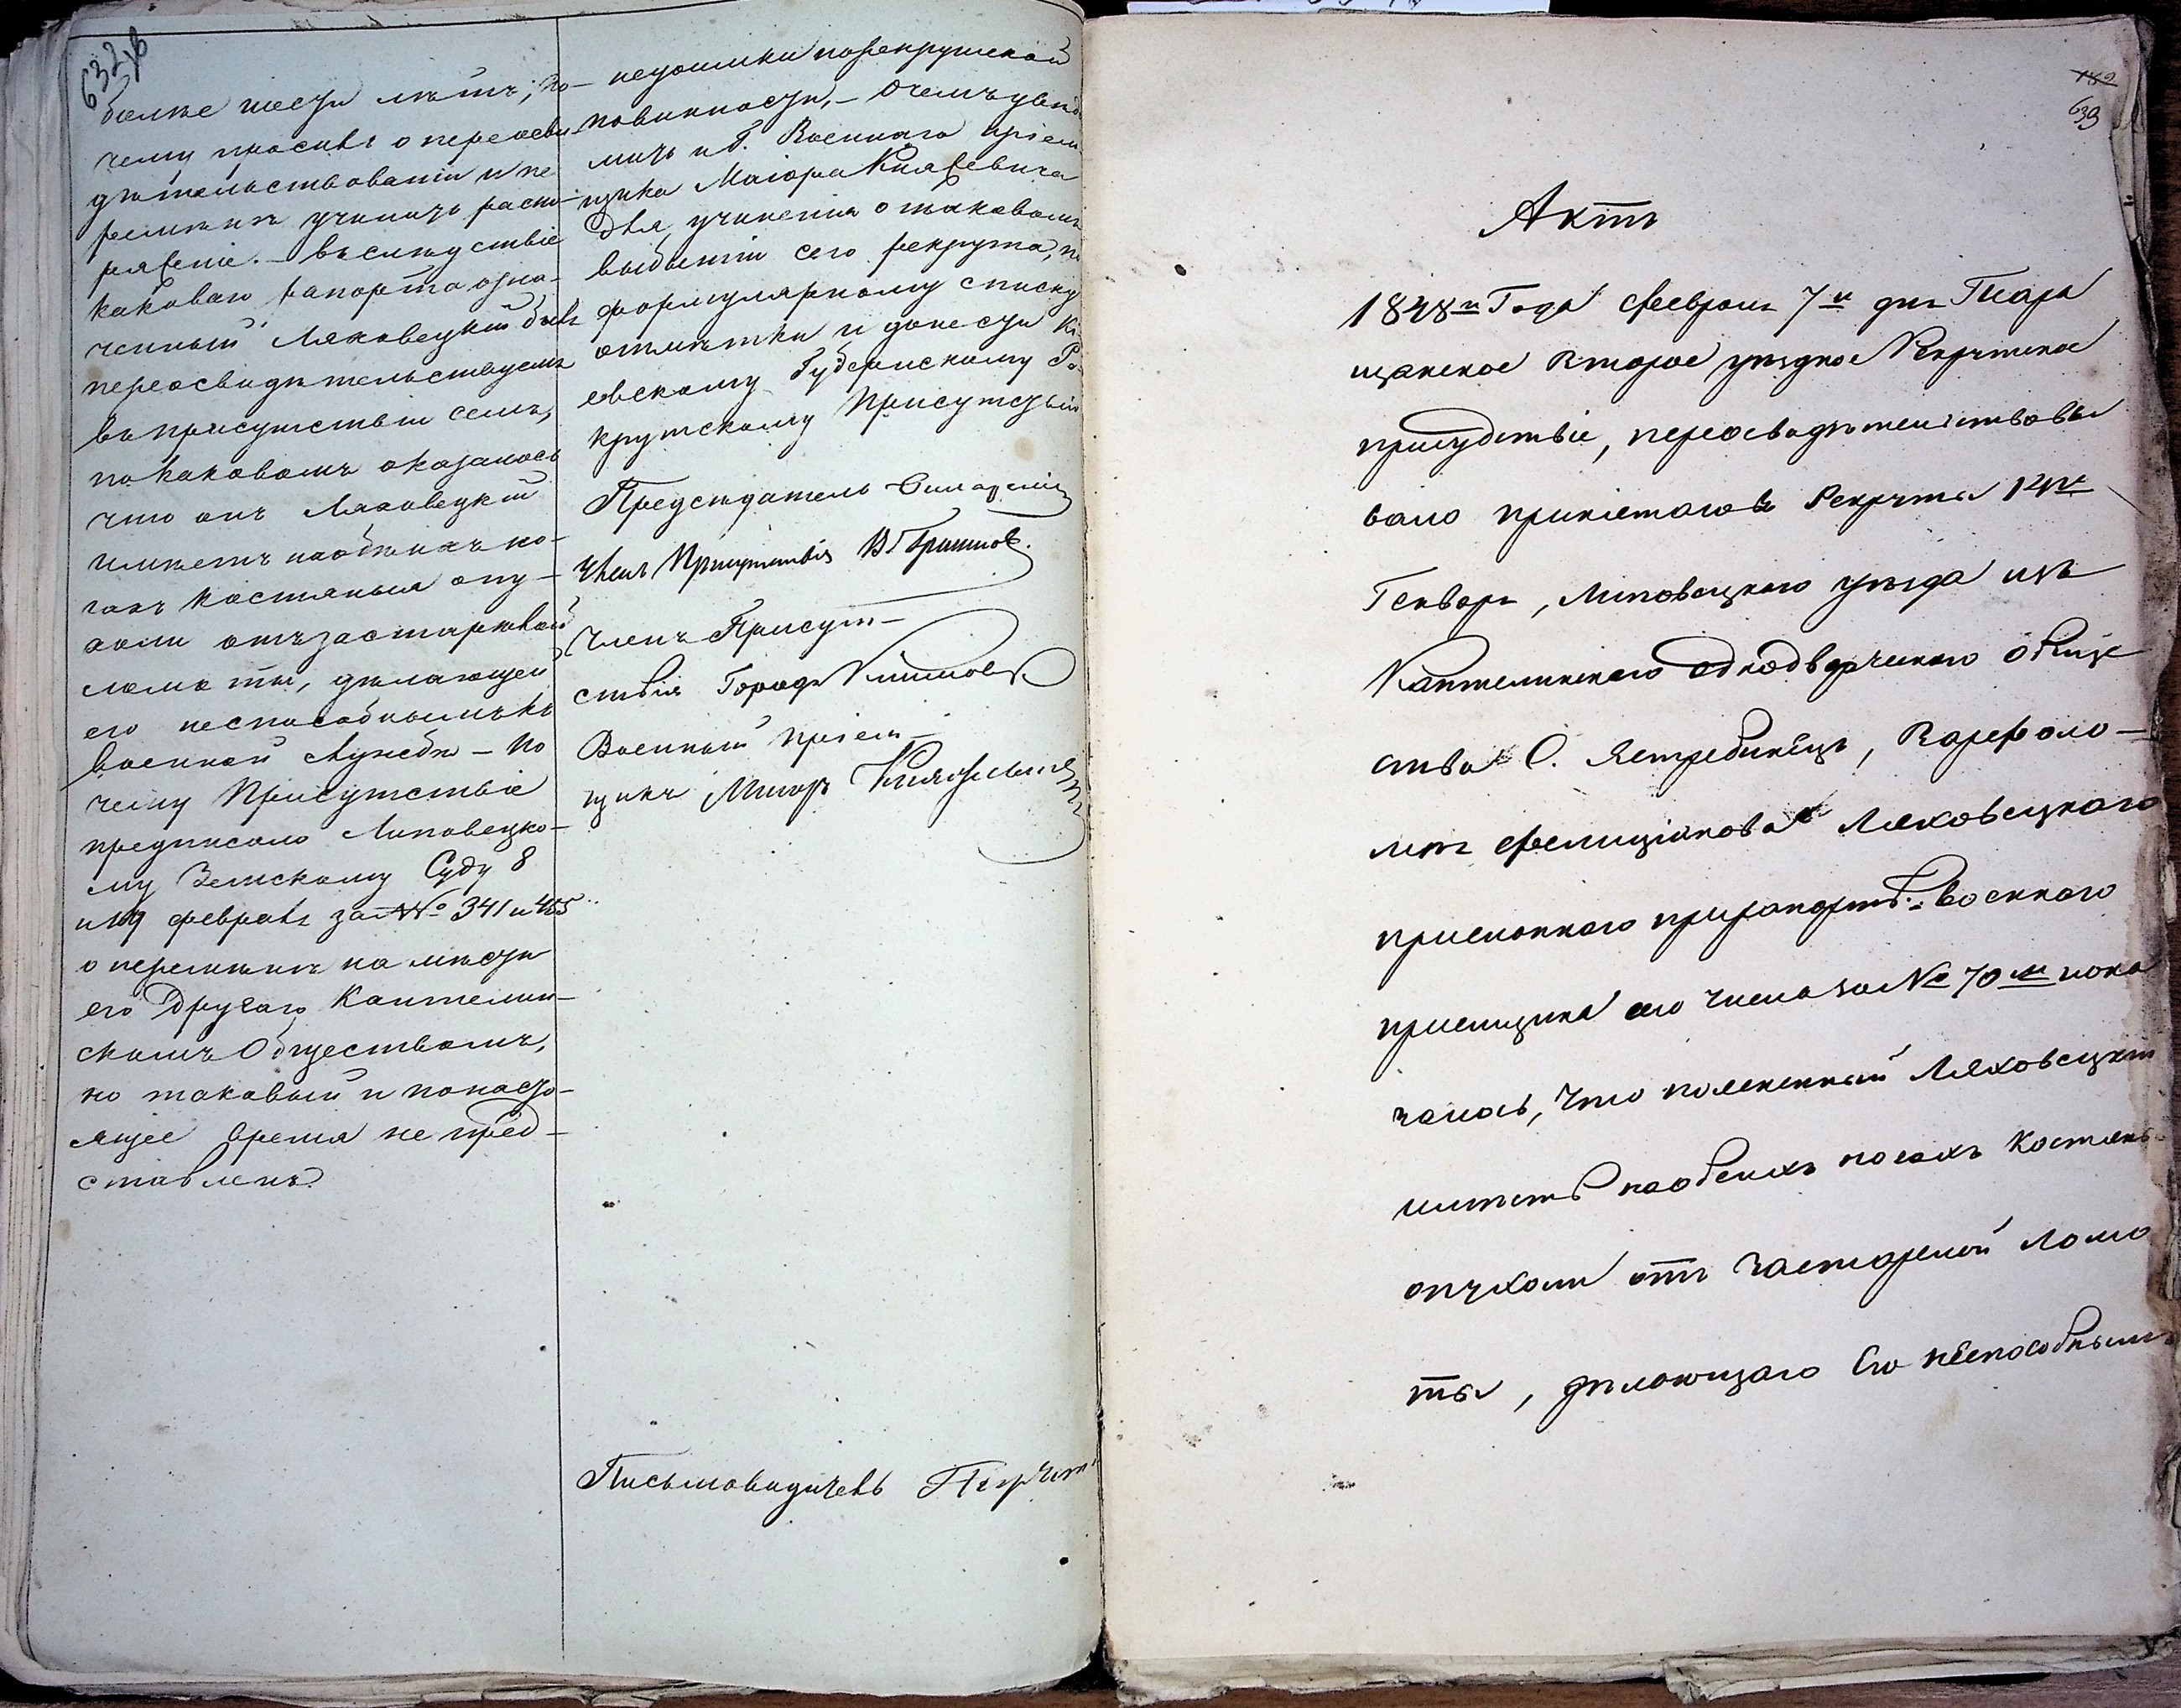 632 об
более шести летъ, по-
чему просивъ о переосви-
дѣтельствованіи и пе
ремѣнѣ учинить распо-
ряженіе. – Въ слѣдствіе
каковаго рапорта озна-
ченный Ляховецкій бывъ
переосвидѣтельствуемъ
въ присутствіи семъ,
по каковомъ оказалось
что онъ Ляховецкій
имѣетъ на обѣихъ но-
гахъ костяныя опу-
холи отъ застарѣвшей
ломоты, дѣлающей
его неспособнымъ къ
военной службѣ – По
чему Присутствіе
предписало Липовецко-
му Земскому Суду 8
и 19 февраля за №№ 341 и 455
о перемѣнѣ на мѣсто
его другаго Кантелин-
скимъ Обществомъ,
но таковый и по насто-
ящее время не пред-
ставленъ
недоимки по рекрутской
повинности, – О чемъ увѣдо
мить и Г. Военнаго пріем
щика Маіора Княжевича
для учиненія о таковомъ
выбытіи сего рекрута, по
формулярному списку
отмѣтки и донести Кі
евскому Губернскому Ре
крутскому Присутствію
Предсѣдатель
Членъ Присутствія
Членъ Присут-
ствія Городн. Климовъ
Военный Пріем-
щикъ Маіоръ Княжевичъ
Письмоводитель
182
633
Актъ
1848го Года февраля 7го дня Тара
щанское второе уѣздное Рекрутское
присудствіе, переосвидѣтельствовы
вало принятаго въ Рекруты 14го
Генваря, Липовецкого уѣзда изъ
Кантелинскаго однодворческаго обще
ства С. Ястребинецъ, Варфоло-
мея Фелиціанова Ляховецкаго
присланнаго при рапортѣ военнаго
пріемщика сего числа за № 70м и ока
залось, что помянутый Ляховецкій
имѣетъ на обеихъ ногахъ костяны
опухоли отъ застарелой ломо
ты, дѣлающаго Его неспособнымъ